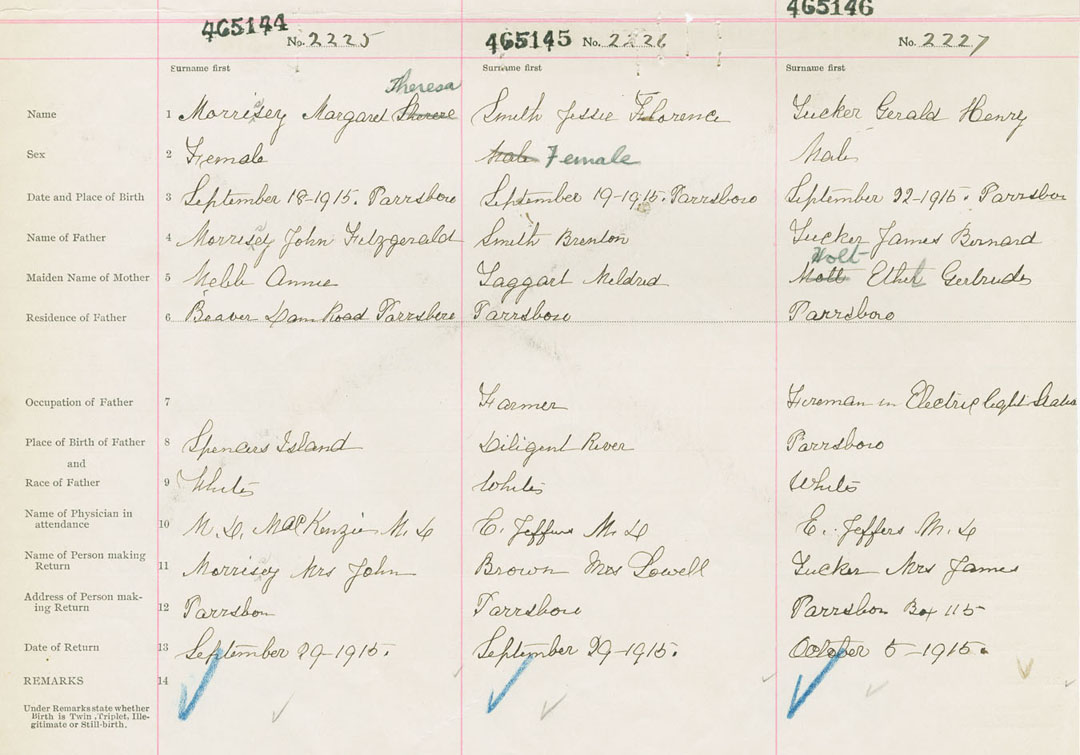 465144 No. 2225 465145 No. 2226 465146 No. 2227
Surname first Surname first Surname first
Theresa
Name 1 Morrisey Margaret Smith Jessie Florence Tucker Gerald Henry
Sex 2 Female Male Female Male
Date and Place of Birth 3 September 18-1915. Parrsboro September 19-1915. Parrsboro September 22-1915. Parrsboro
Name of Father 4 Morrisey John Fitzgerald Smith Brenton Tucker James Bernard
Holt
Maiden Name of Mother 5 Annie Taggart Meldred Ethel Gertrude
Residence of Father 6 Beaver Dam Road Parrsboro Parrsboro Parrsboro
Occupation of Father 7 Farmer Fireman in Electric light Station
Place of Birth of Father 8 Spencers Island Diligent River Parrsboro
and
Race of Father 9 White White White
Name of Physician in
attendance 10 M. D. MacKenzie M. D E. Jeffers M. D E. Jeffers M. D
Name of Person making
Return 11 Morrisey Mrs John Brown Mrs Lowell Tucker Mrs James
Address of Person mak-
ing Return 12 Parrsboro Parrsboro Parrsboro Box 115
Date of Return 13 September 29-1915. September 29-1915. October 5-1915.
REMARKS 14
Under Remarks state whether
Birth is Twin, Triplet, Ille-
gitimate or Still-birth.